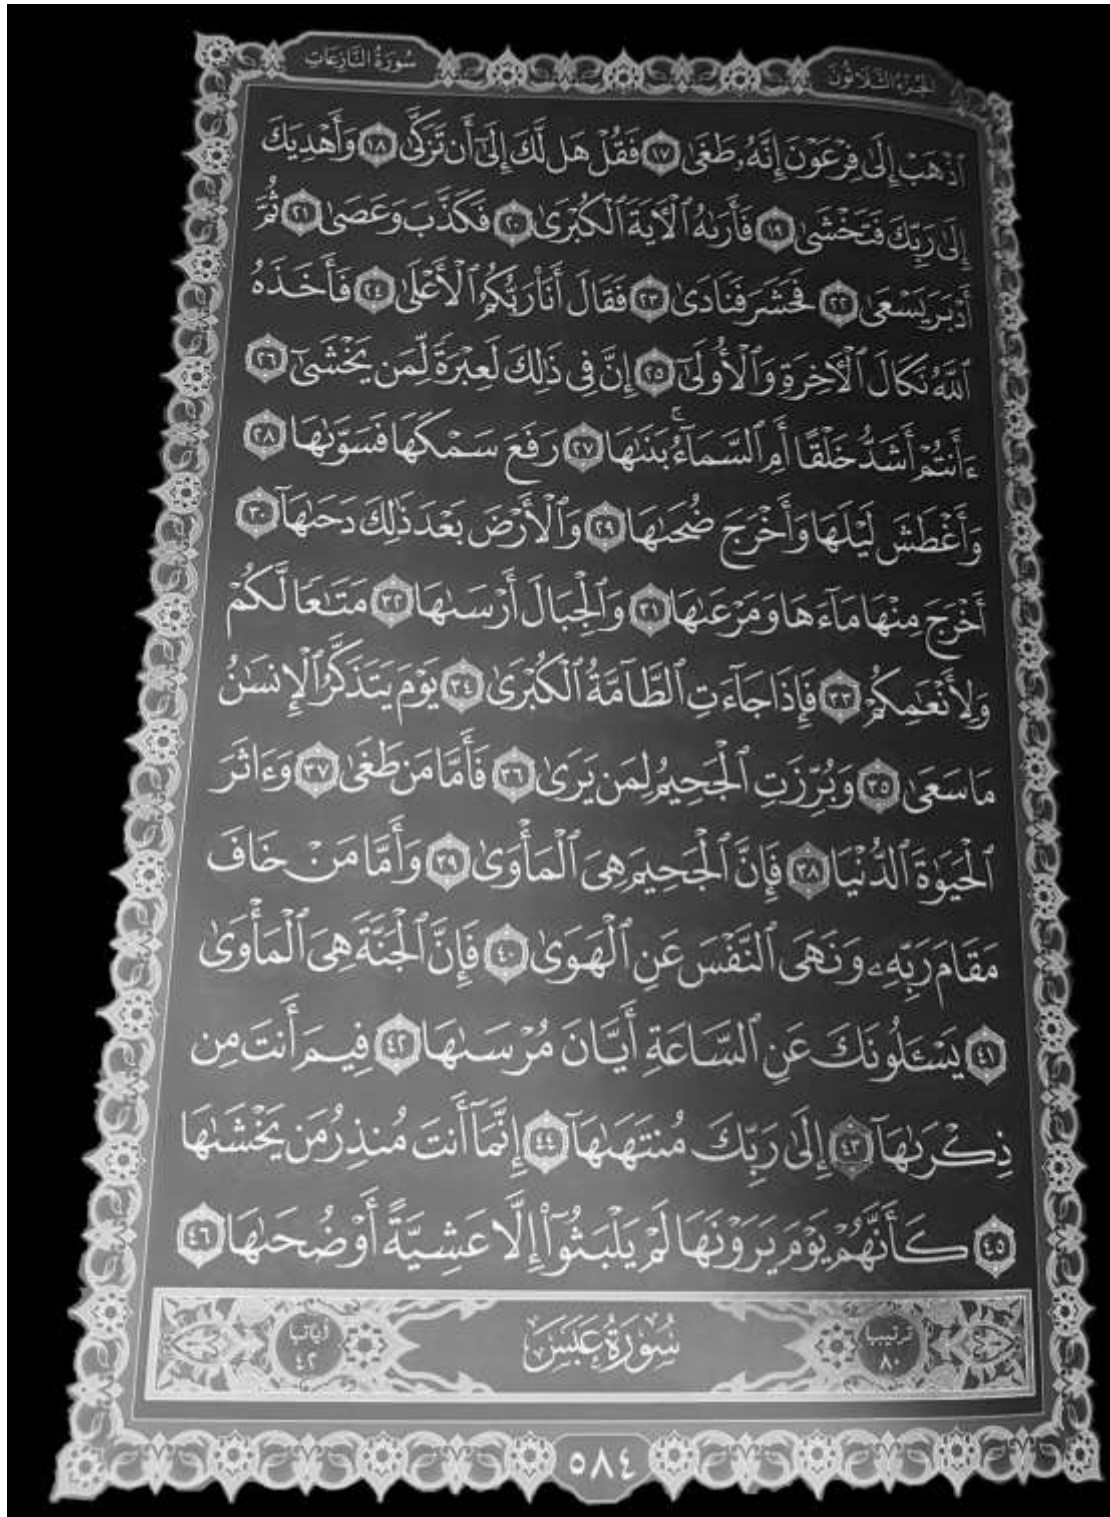 الجزء الثلاثون
سورة النازعات
ٱذْهَبْ إِلَىٰ فِرْعَوْنَ إِنَّهُۥ طَغَىٰ ١٧ فَقُلْ هَل لَّكَ إِلَىٰٓ أَن تَزَكَّىٰ ١٨ وَأَهْدِيَكَ
إِلَىٰ رَبِّكَ فَتَخْشَىٰ ١٩ فَأَرَىٰهُ ٱلْـَٔايَةَ ٱلْكُبْرَىٰ ٢٠ فَكَذَّبَ وَعَصَىٰ ٢١ ثُمَّ
أَدْبَرَ يَسْعَىٰ ٢٢ فَحَشَرَ فَنَادَىٰ ٢٣ فَقَالَ أَنَا۠ رَبُّكُمُ ٱلْأَعْلَىٰ ٢٤ فَأَخَذَهُ
ٱللَّهُ نَكَالَ ٱلْـَٔاخِرَةِ وَٱلْأُولَىٰٓ ٢٥ إِنَّ فِى ذَٰلِكَ لَعِبْرَةً لِّمَن يَخْشَىٰٓ ٢٦
ءَأَنتُمْ أَشَدُّ خَلْقًا أَمِ ٱلسَّمَآءُ ۚ بَنَىٰهَا ٢٧ رَفَعَ سَمْكَهَا فَسَوَّىٰهَا ٢٨
وَأَغْطَشَ لَيْلَهَا وَأَخْرَجَ ضُحَىٰهَا ٢٩ وَٱلْأَرْضَ بَعْدَ ذَٰلِكَ دَحَىٰهَآ ٣٠
أَخْرَجَ مِنْهَا مَآءَهَا وَمَرْعَىٰهَا ٣١ وَٱلْجِبَالَ أَرْسَىٰهَا ٣٢ مَتَٰعًا لَّكُمْ
وَلِأَنْعَٰمِكُمْ ٣٣ فَإِذَا جَآءَتِ ٱلطَّآمَّةُ ٱلْكُبْرَىٰ ٣٤ يَوْمَ يَتَذَكَّرُ ٱلْإِنسَٰنُ
مَا سَعَىٰ ٣٥ وَبُرِّزَتِ ٱلْجَحِيمُ لِمَن يَرَىٰ ٣٦ فَأَمَّا مَن طَغَىٰ ٣٧ وَءَاثَرَ
ٱلْحَيَوٰةَ ٱلدُّنْيَا ٣٨ فَإِنَّ ٱلْجَحِيمَ هِىَ ٱلْمَأْوَىٰ ٣٩ وَأَمَّا مَنْ خَافَ
مَقَامَ رَبِّهِۦ وَنَهَى ٱلنَّفْسَ عَنِ ٱلْهَوَىٰ ٤٠ فَإِنَّ ٱلْجَنَّةَ هِىَ ٱلْمَأْوَىٰ
٤١ يَسْـَٔلُونَكَ عَنِ ٱلسَّاعَةِ أَيَّانَ مُرْسَىٰهَا ٤٢ فِيمَ أَنتَ مِن
ذِكْرَىٰهَآ ٤٣ إِلَىٰ رَبِّكَ مُنتَهَىٰهَآ ٤٤ إِنَّمَآ أَنتَ مُنذِرُ مَن يَخْشَىٰهَا
٤٥ كَأَنَّهُمْ يَوْمَ يَرَوْنَهَا لَمْ يَلْبَثُوٓا۟ إِلَّا عَشِيَّةً أَوْ ضُحَىٰهَا ٤٦
ترتيبها ٨٠
سُورَةُ عَبَسَ
آياتها ٤٢
٥٨٤